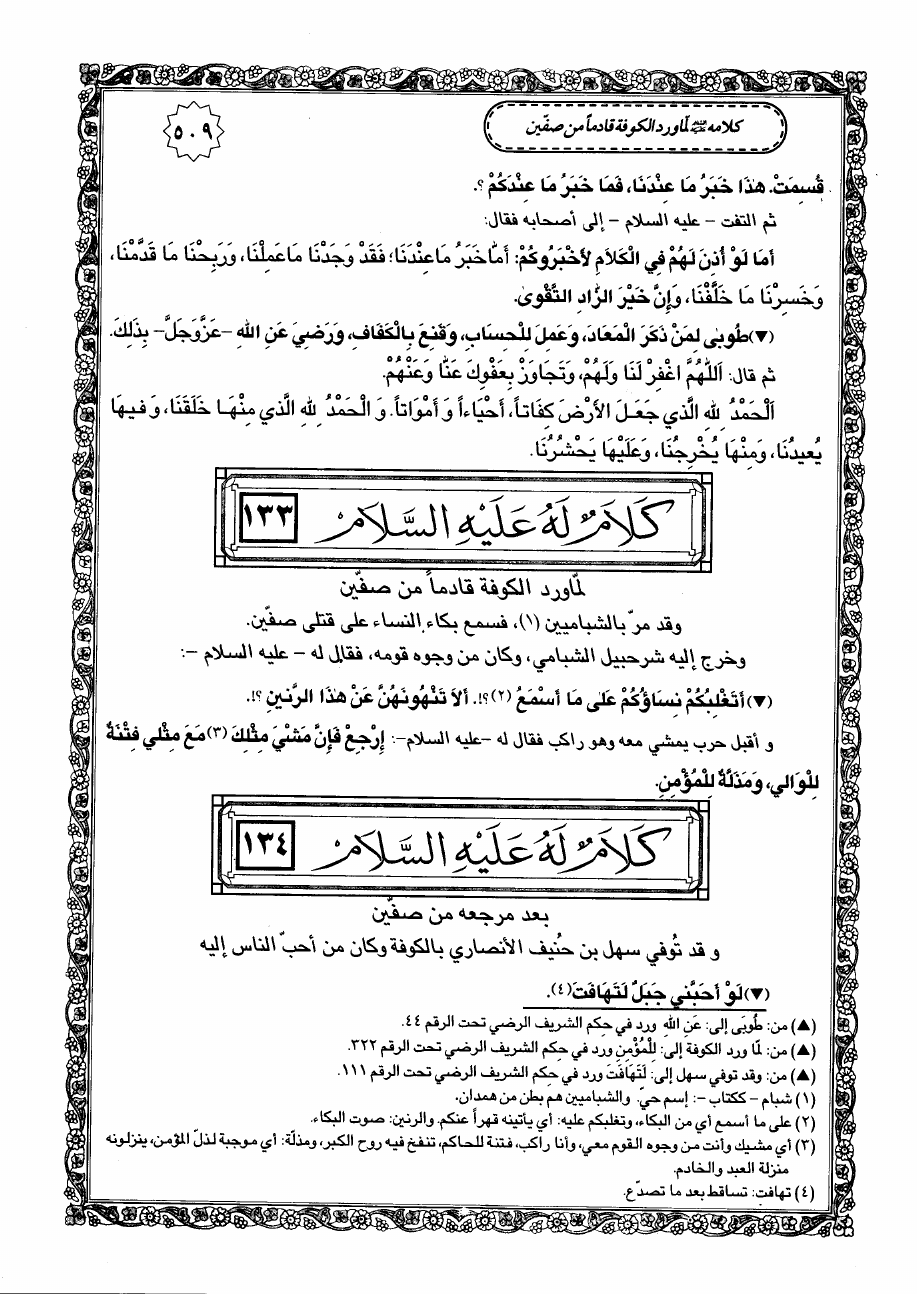 كلامه عليه السلام لمّا ورد الكوفة قادماً من صفّين
٥٠٩
قُسِمَتْ. هٰذَا خَبَرُ مَا عِنْدَنَا، فَمَا خَبَرُ مَا عِنْدَكُمْ ؟.
ثم التفت – عليه السلام – إلى أصحابه فقال:
أَمَا لَوْ أُذِنَ لَهُمْ فِي الْكَلَامِ لَأَخْبَرُوكُمْ: أَمَّا خَبَرُ مَا عِنْدَنَا؛ فَقَدْ وَجَدْنَا مَا عَمِلْنَا، وَرَبِحْنَا مَا قَدَّمْنَا،
وَخَسِرْنَا مَا خَلَّفْنَا، وَإِنَّ خَيْرَ الزَّادِ التَّقْوىٰ.
(▼) طُوبىٰ لِمَنْ ذَكَرَ الْمَعَادَ، وَعَمِلَ لِلْحِسَابِ، وَقَنِعَ بِالْكَفَافِ، وَرَضِيَ عَنِ اللهِ –عَزَّوَجَلَّ– بِذَلِكَ.
ثم قال: اَللّٰهُمَّ اغْفِرْ لَنَا وَلَهُمْ، وَتَجَاوَزْ بِعَفْوِكَ عَنَّا وَعَنْهُمْ.
اَلْحَمْدُ لِلهِ الَّذي جَعَلَ الأَرْضَ كِفَاتاً، أَحْيَاءاً وَ أَمْوَاتاً. وَ الْحَمْدُ لِلهِ الَّذي مِنْهَا خَلَقَنَا، وَفيهَا
يُعيدُنَا، وَمِنْهَا يُخْرِجُنَا، وَعَلَيْهَا يَحْشُرُنَا.
كَلَامٌ لَهُ عَلَيْهِ السَّلَامُ ١٣٣
لمّا ورد الكوفة قادماً من صفّين
وقد مرّ بالشباميين (١)، فسمع بكاء النساء على قتلى صفّين.
وخرج إليه شرحبيل الشبامي، وكان من وجوه قومه، فقال له – عليه السلام –:
(▼) أَتَغْلِبُكُمْ نِسَاؤُكُمْ عَلىٰ مَا أَسْمَعُ (٢)؟!. أَلَا تَنْهَوْنَهُنَّ عَنْ هذَا الرَّنينِ ؟!.
و أقبل حرب يمشي معه وهو راكب فقال له –عليه السلام–: إِرْجِعْ فَإِنَّ مَشْيَ مِثْلِكَ (٣) مَعَ مِثْلي فِتْنَةٌ
لِلْوَالي، وَمَذَلَّةٌ لِلْمُؤْمِنِ.
كَلَامٌ لَهُ عَلَيْهِ السَّلَامُ ١٣٤
بعد مرجعه من صفّين
و قد تُوفي سهل بن حنُيف الأنصاري بالكوفة وكان من أحبّ الناس إليه
(▼) لَوْ أَحَبَّني جَبَلٌ لَتَهَافَتَ (٤).
(▲) من: طُوبَى إلى: عَنِ اللهِ ورد في حكم الشريف الرضي تحت الرقم ٤٤.
(▲) من: لمّا ورد الكوفة إلى: لِلْمُؤْمِنِ ورد في حِكم الشريف الرضي تحت الرقم ٣٢٢.
(▲) من: وقد توفي سهل إلى: لَتَهَافَتَ ورد في حِكم الشريف الرضي تحت الرقم ١١١.
(١) شبام – ككتاب –: إسم حيّ. والشباميين هم بطن من همدان.
(٢) على ما أسمع أي من البكاء، وتغلبكم عليه: أي يأتينه قهراً عنكم. والرنين: صوت البكاء.
(٣) أي مشيك وأنت من وجوه القوم معي، وأنا راكب، فتنة للحاكم، تنفخ فيه روح الكبر، ومذلّة: أي موجبة لذلّ المؤمن، ينزلونه
منزلة العبد والخادم.
(٤) تهافت: تساقط بعد ما تصدّع.